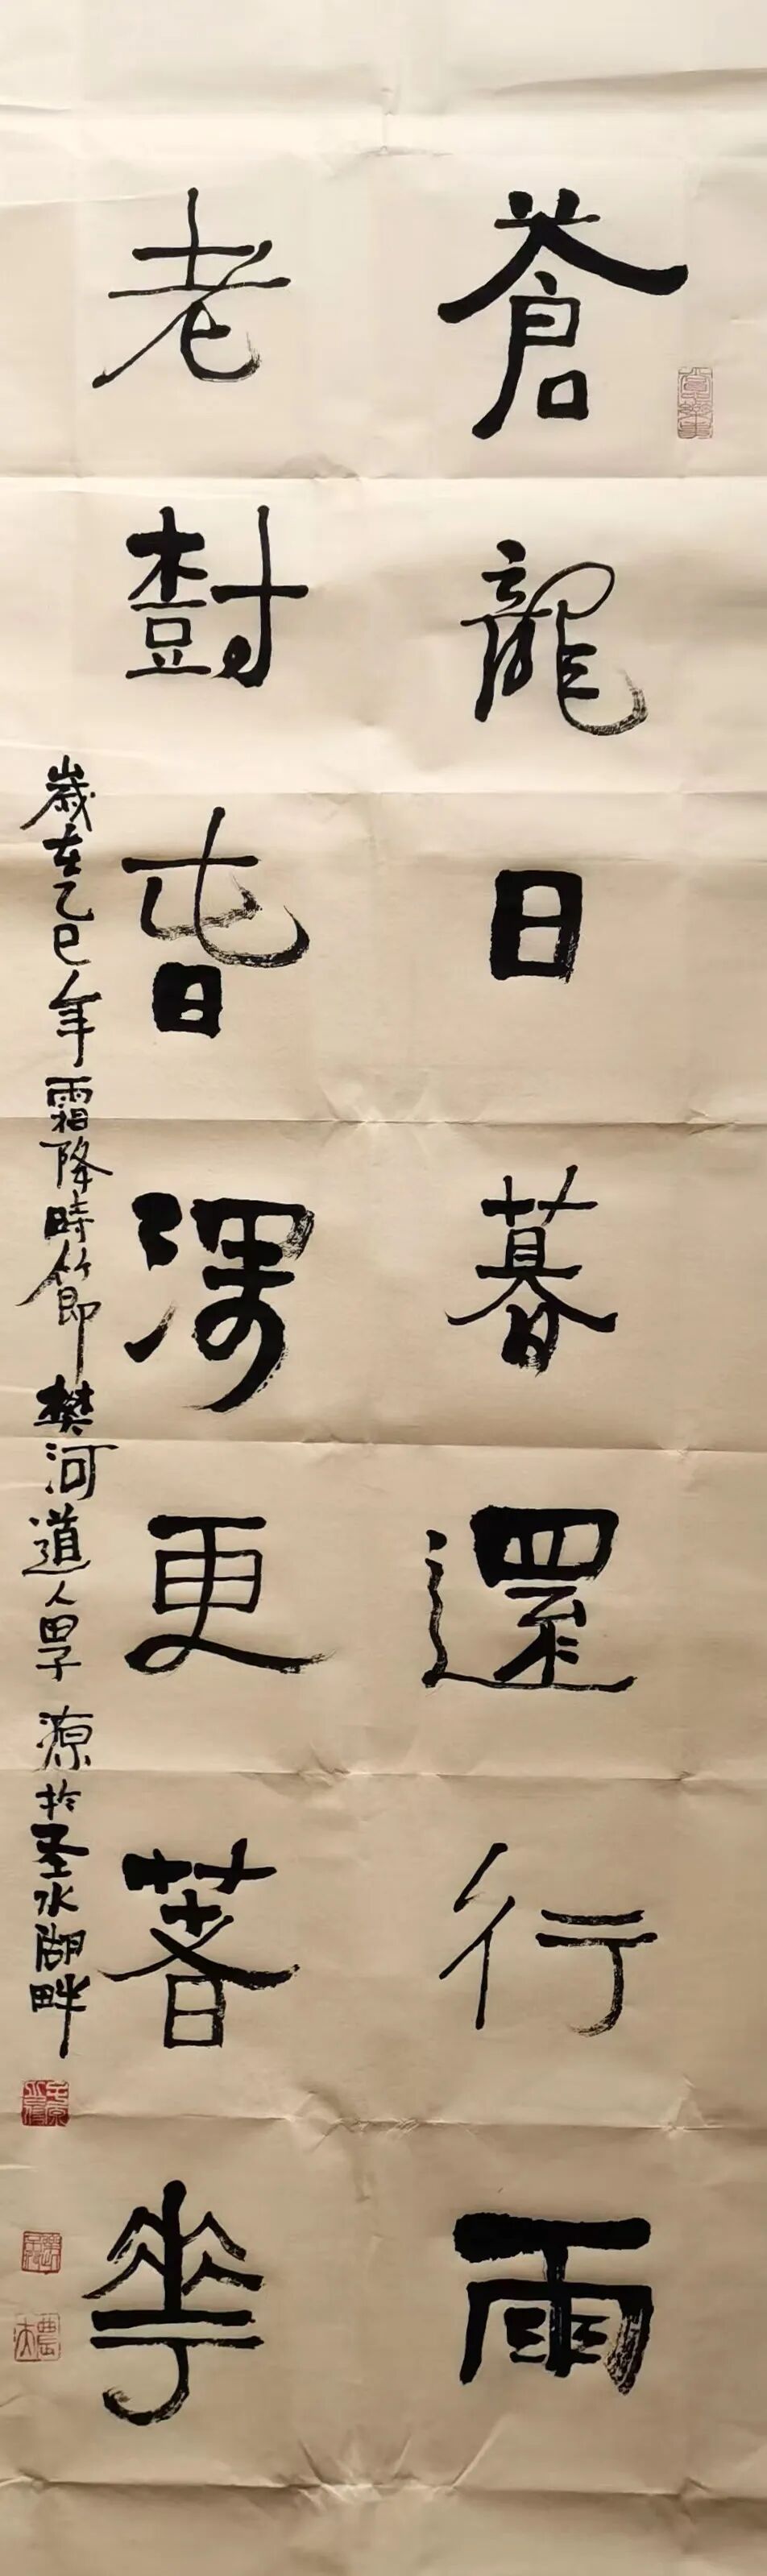 蒼龍日暮還行雨
老樹旾深更著華
歲在乙巳年霜降時節樊河道人源於圣水湖畔